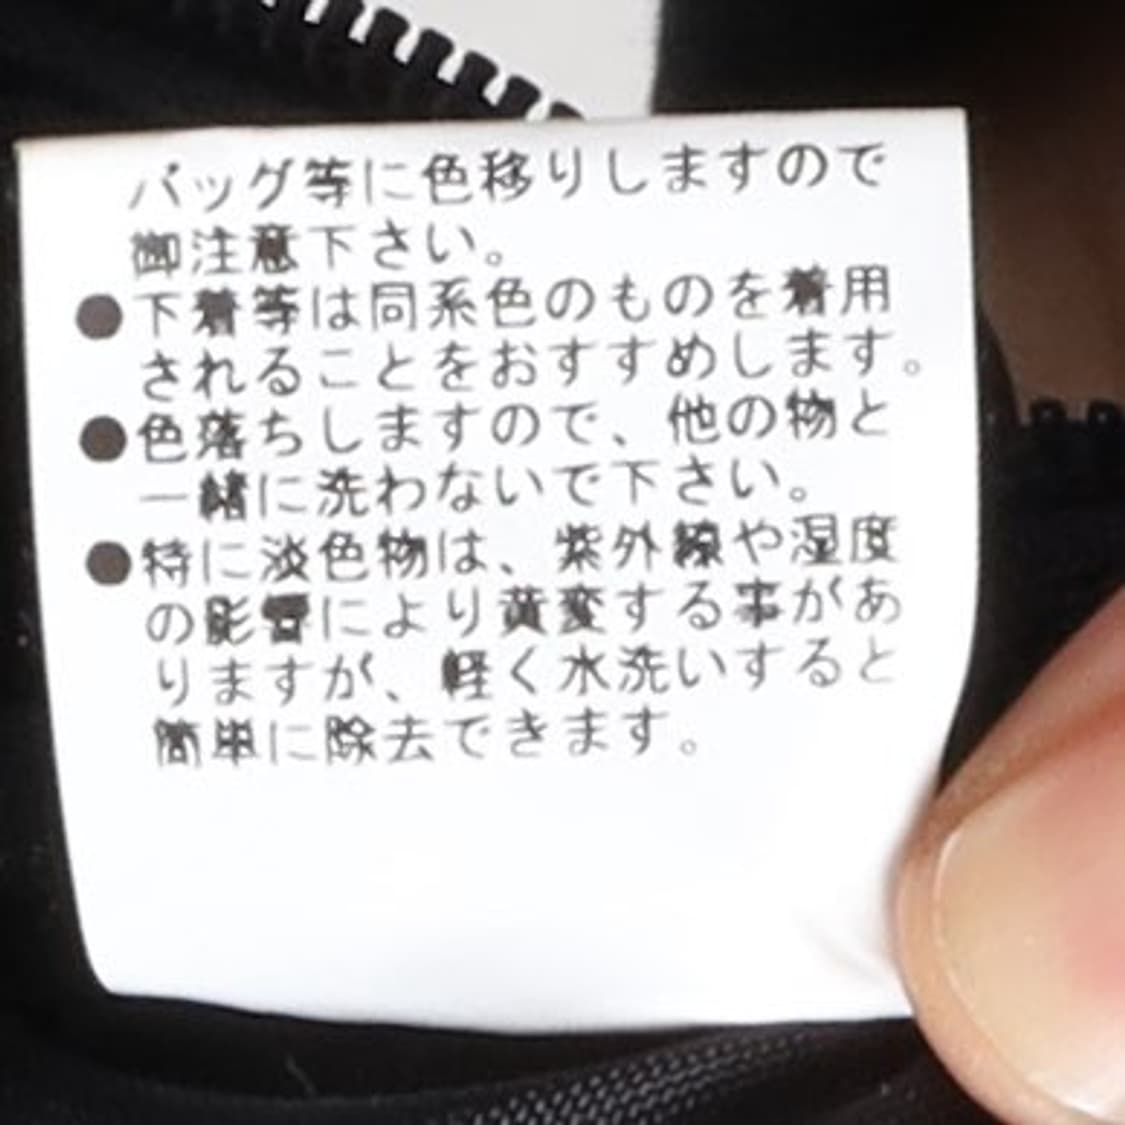 バッグ等に色移りしますので
御注意下さい。
●下着等は同系色のものを着用
されることをおすすめします。
●色落ちしますので、他の物と
一緒に洗わないで下さい。
●特に淡色物は、紫外線や湿度
の影響により黄変する事があ
りますが、軽く水洗いすると
簡単に除去できます。